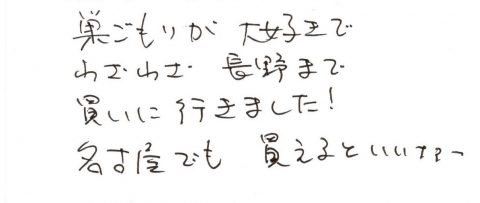 巣ごもりが 大好きで
わざわざ 長野まで
買いに行きました!
名古屋でも 買えるといいなァ〜